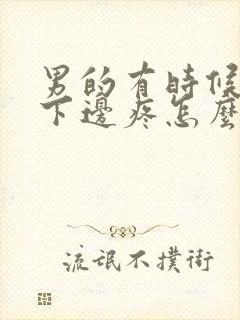 男的有時候
下邊疼怎麼
流氓不撲街